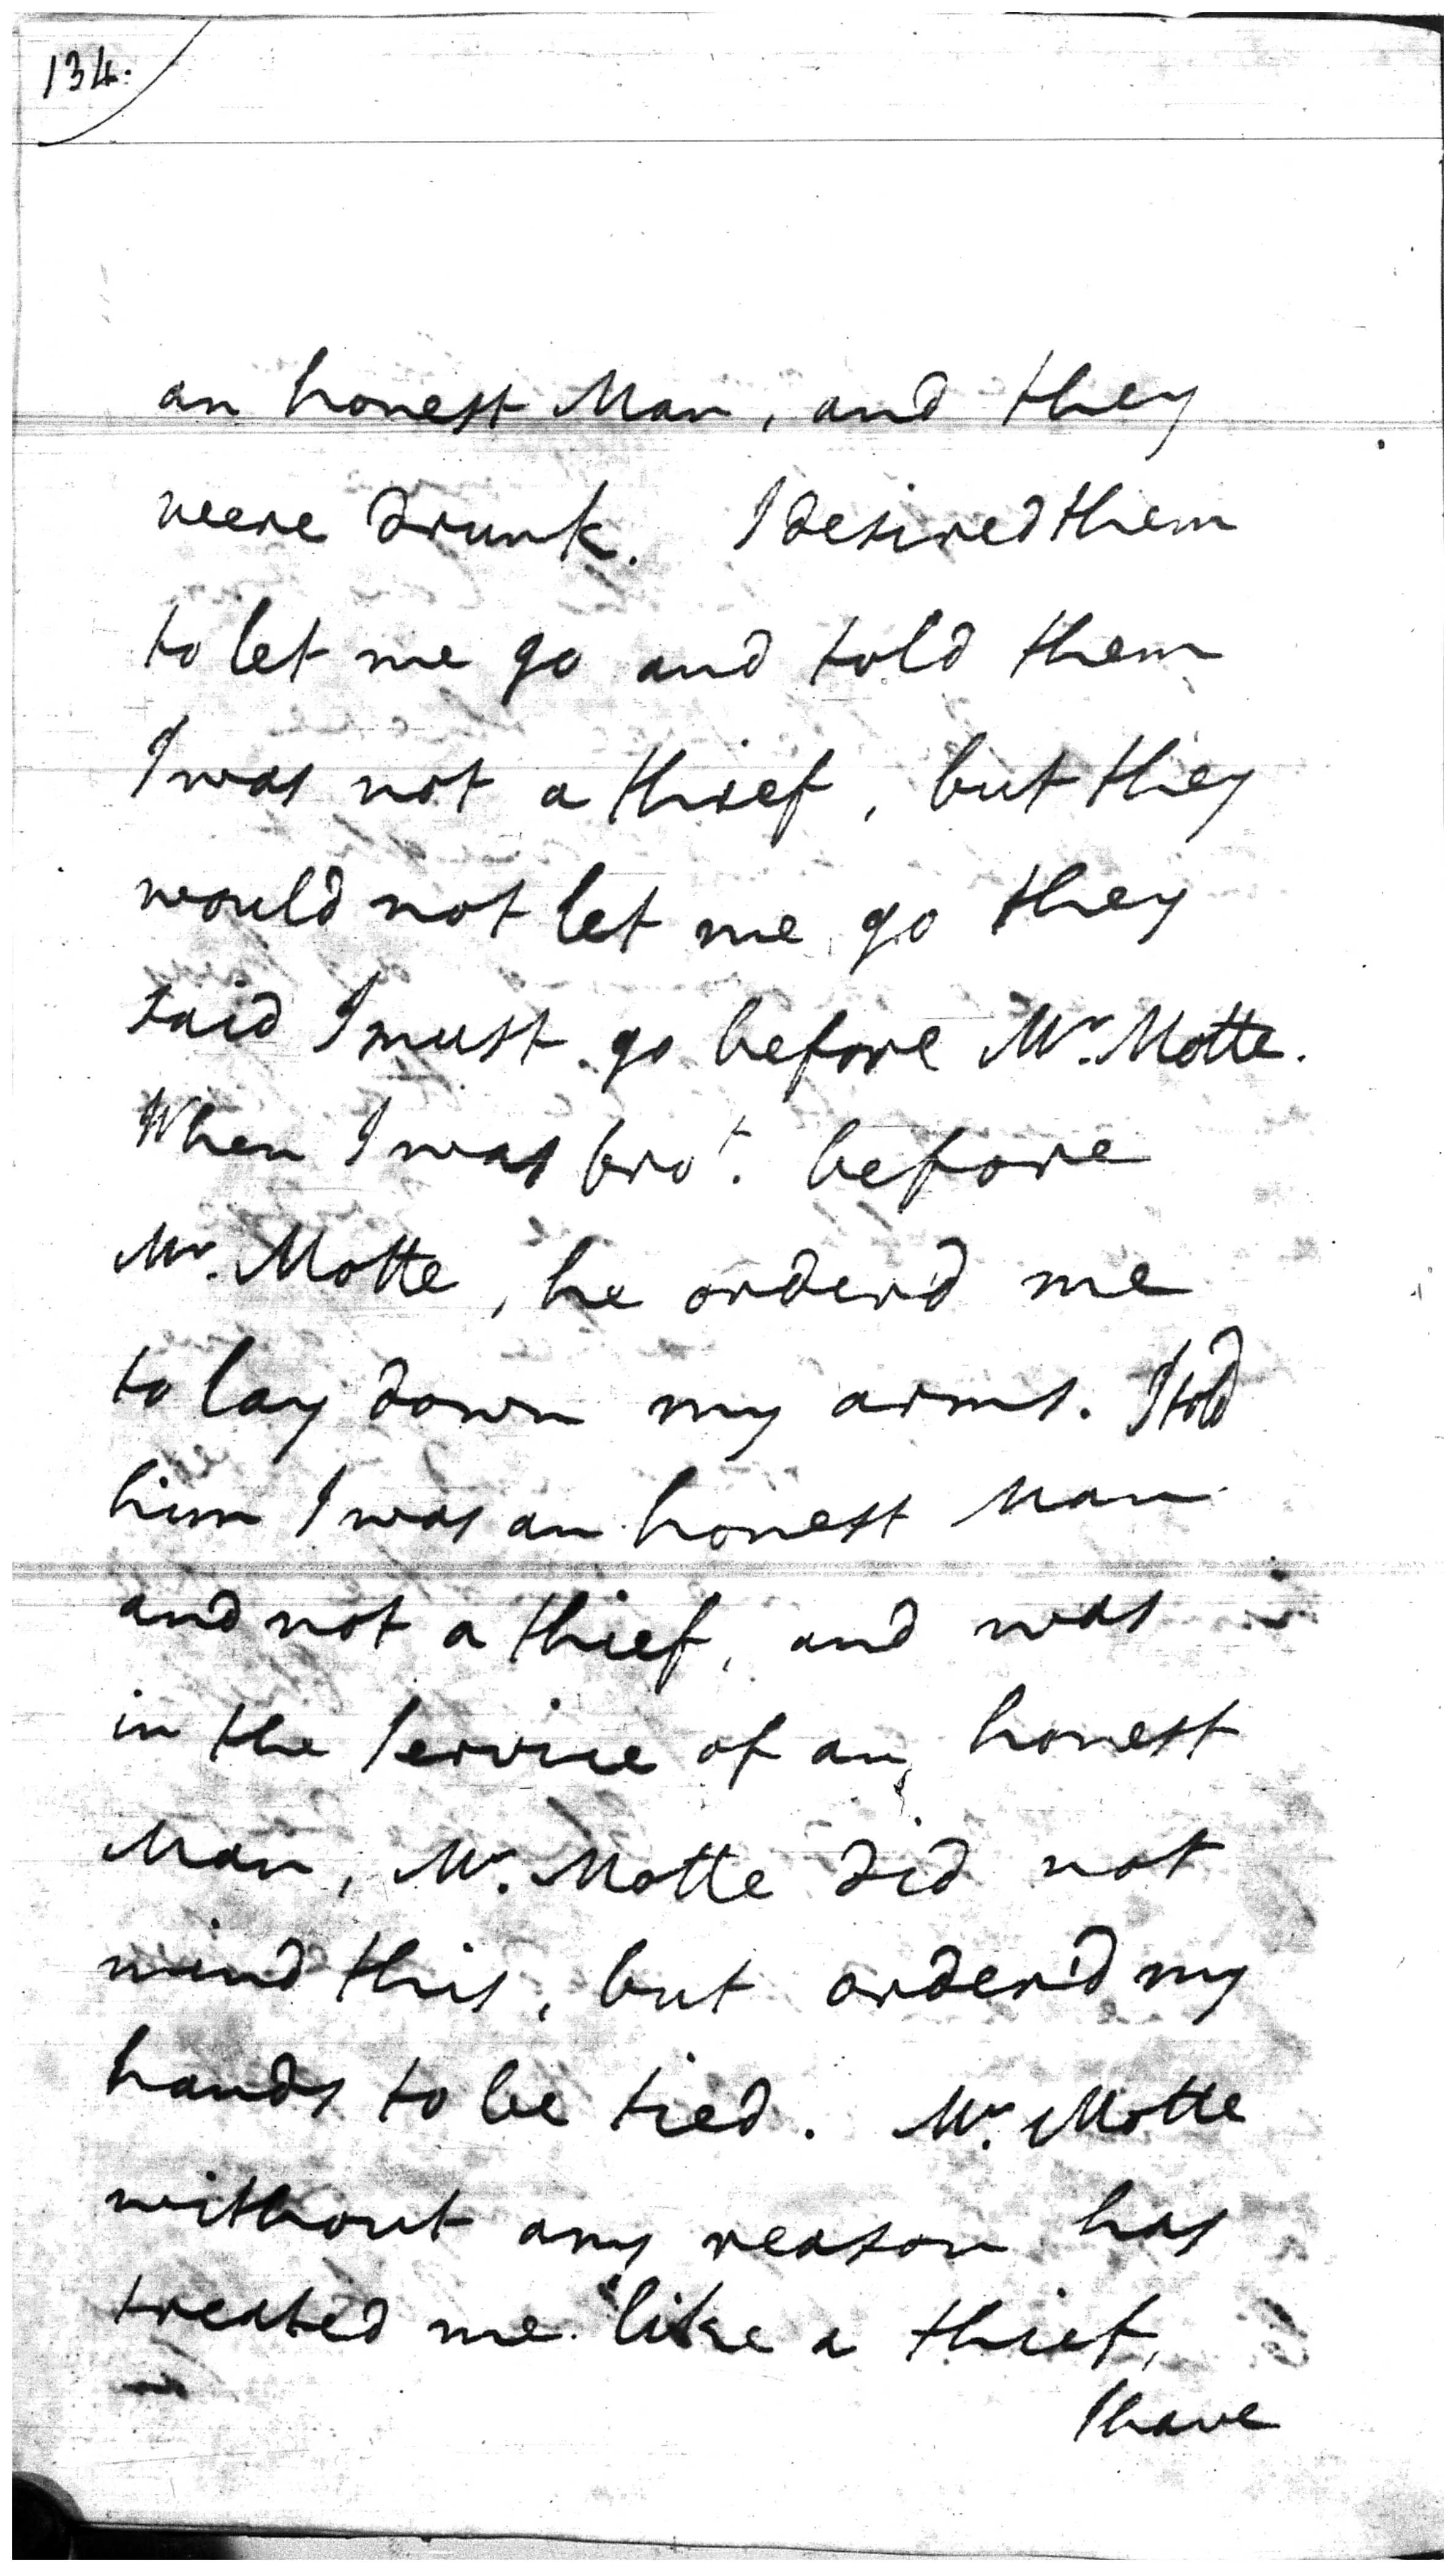 134.
an honest Man, and they
were drunk. I desired them
to let me go and told them
I was not a thief, but they
would not let me go they
said I must go before Mr. Motte.
When I was brot. before
Mr. Motte, he orderd me
to lay down my arms. I told
him I was an honest Man
and not a thief, and was
in the Service of an honest
Man, Mr. Motte did not
mind this, but order'd my
hands to be tied. Mr. Motte
without any reason has
treated me like a thief,
I have